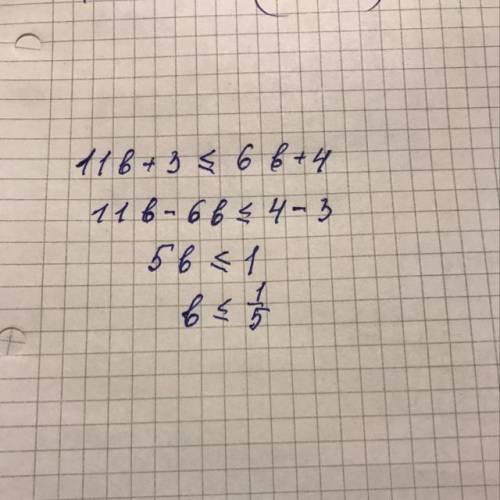 11b + 3 ≤ 6b + 4
11b - 6b ≤ 4 - 3
5b ≤ 1
b ≤ 1/5